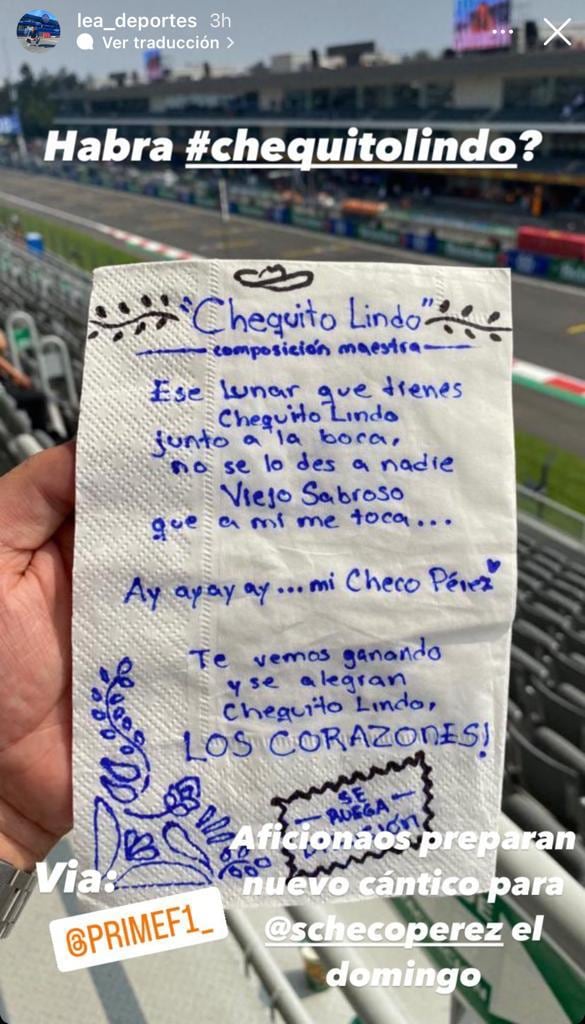 lea_deportes 3h
Ver traducción >
Habra #chequitolindo?
"Chequito Lindo"
composición maestra
Ese lunar que tienes
Chequito Lindo
junto a la boca,
no se lo des a nadie
Viejo Sabroso
que a mí me toca...
Ay ayay ay...mi Checo Pérez
Te vemos ganando
y se alegran
Chequito Lindo,
LOS CORAZONES!
SE
RUEGA
Aficionaos preparan
nuevo cántico para
@schecoperez el
domingo
Via:
@PRIMEF1_